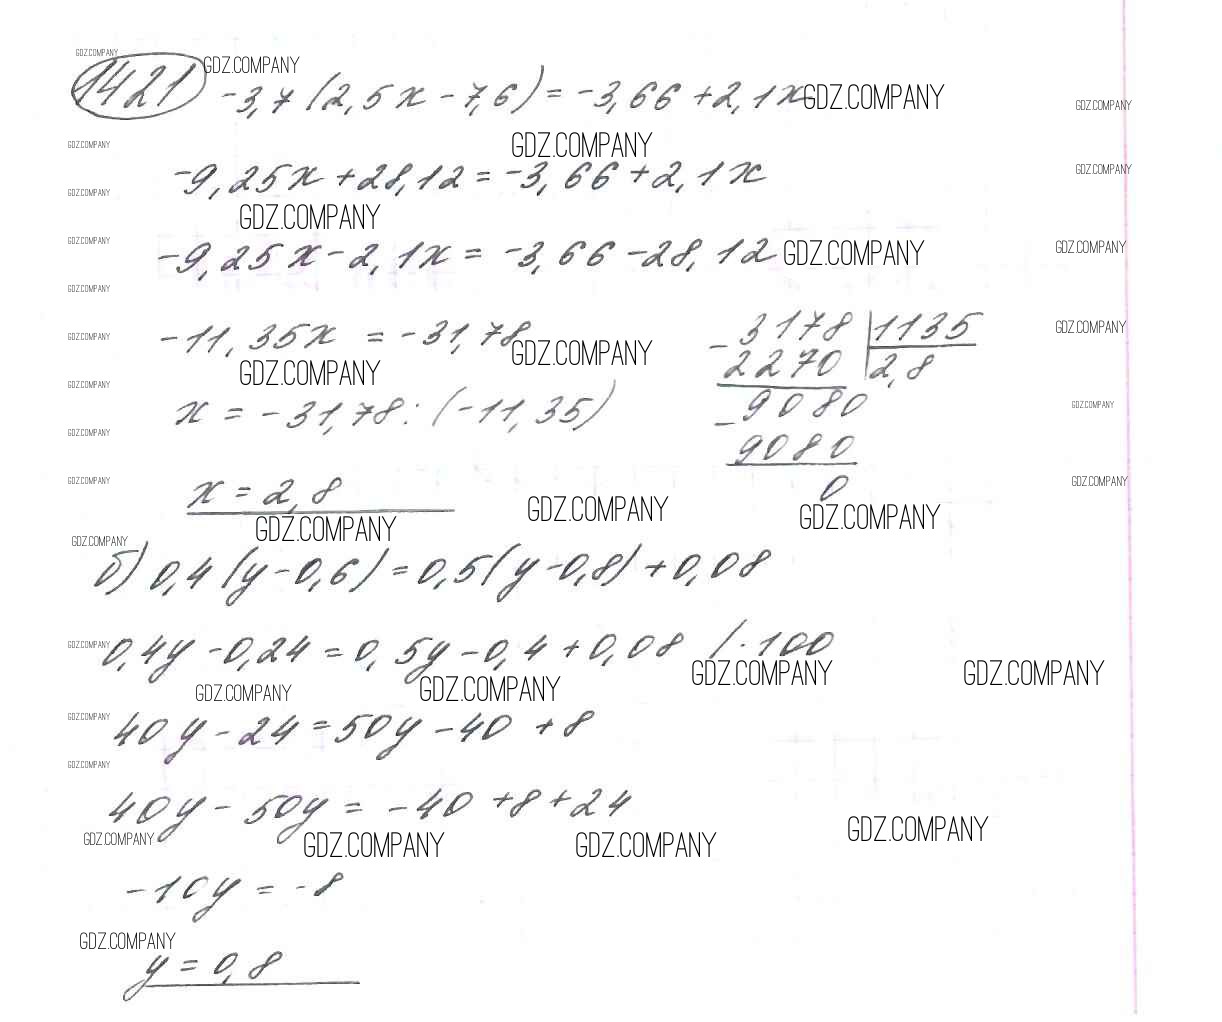 GDZ.COMPANY
1421 GDZ.COMPANY
-3,7(2,5x-7,6)=-3,66+2,1x GDZ.COMPANY GDZ.COMPANY
GDZ.COMPANY GDZ.COMPANY
-9,25x+28,12=-3,66+2,1x GDZ.COMPANY
GDZ.COMPANY GDZ.COMPANY
GDZ.COMPANY
-9,25x-2,1x=-3,66-28,12 GDZ.COMPANY GDZ.COMPANY
GDZ.COMPANY
-11,35x=-31,78 GDZ.COMPANY
GDZ.COMPANY GDZ.COMPANY GDZ.COMPANY
-3178 | 1135
2270 | 2,8
-9080
9080
0
GDZ.COMPANY GDZ.COMPANY
x=-31,78:(-11,35)
GDZ.COMPANY
GDZ.COMPANY GDZ.COMPANY
x=2,8
GDZ.COMPANY GDZ.COMPANY GDZ.COMPANY
GDZ.COMPANY
б) 0,4(y-0,6)=0,5(y-0,8)+0,08
GDZ.COMPANY 0,4y-0,24=0,5y-0,4+0,08 /·100
GDZ.COMPANY GDZ.COMPANY GDZ.COMPANY GDZ.COMPANY
GDZ.COMPANY
40y-24=50y-40+8
GDZ.COMPANY
40y-50y=-40+8+24
GDZ.COMPANY GDZ.COMPANY GDZ.COMPANY GDZ.COMPANY
-10y=-8
GDZ.COMPANY
y=0,8